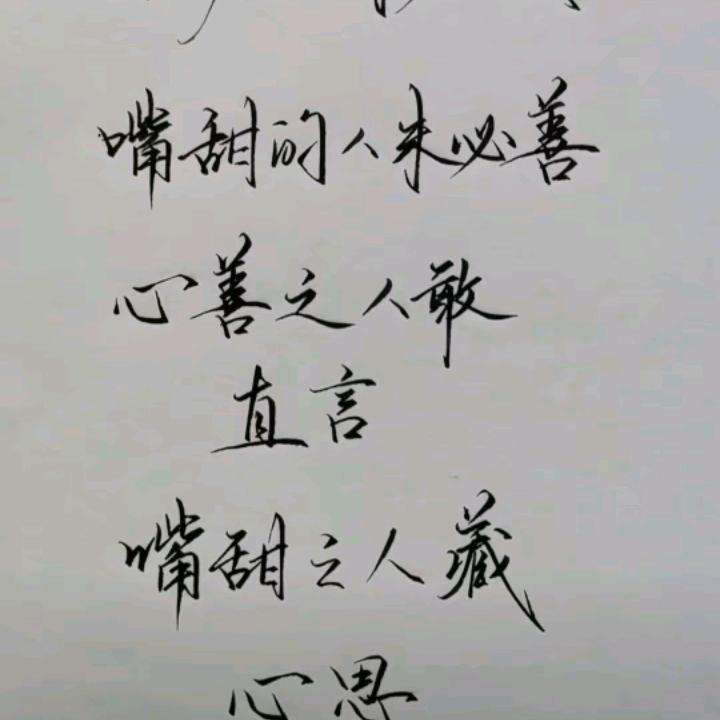 嘴甜的人未必善
心善之人敢
直言
嘴甜之人藏
心思